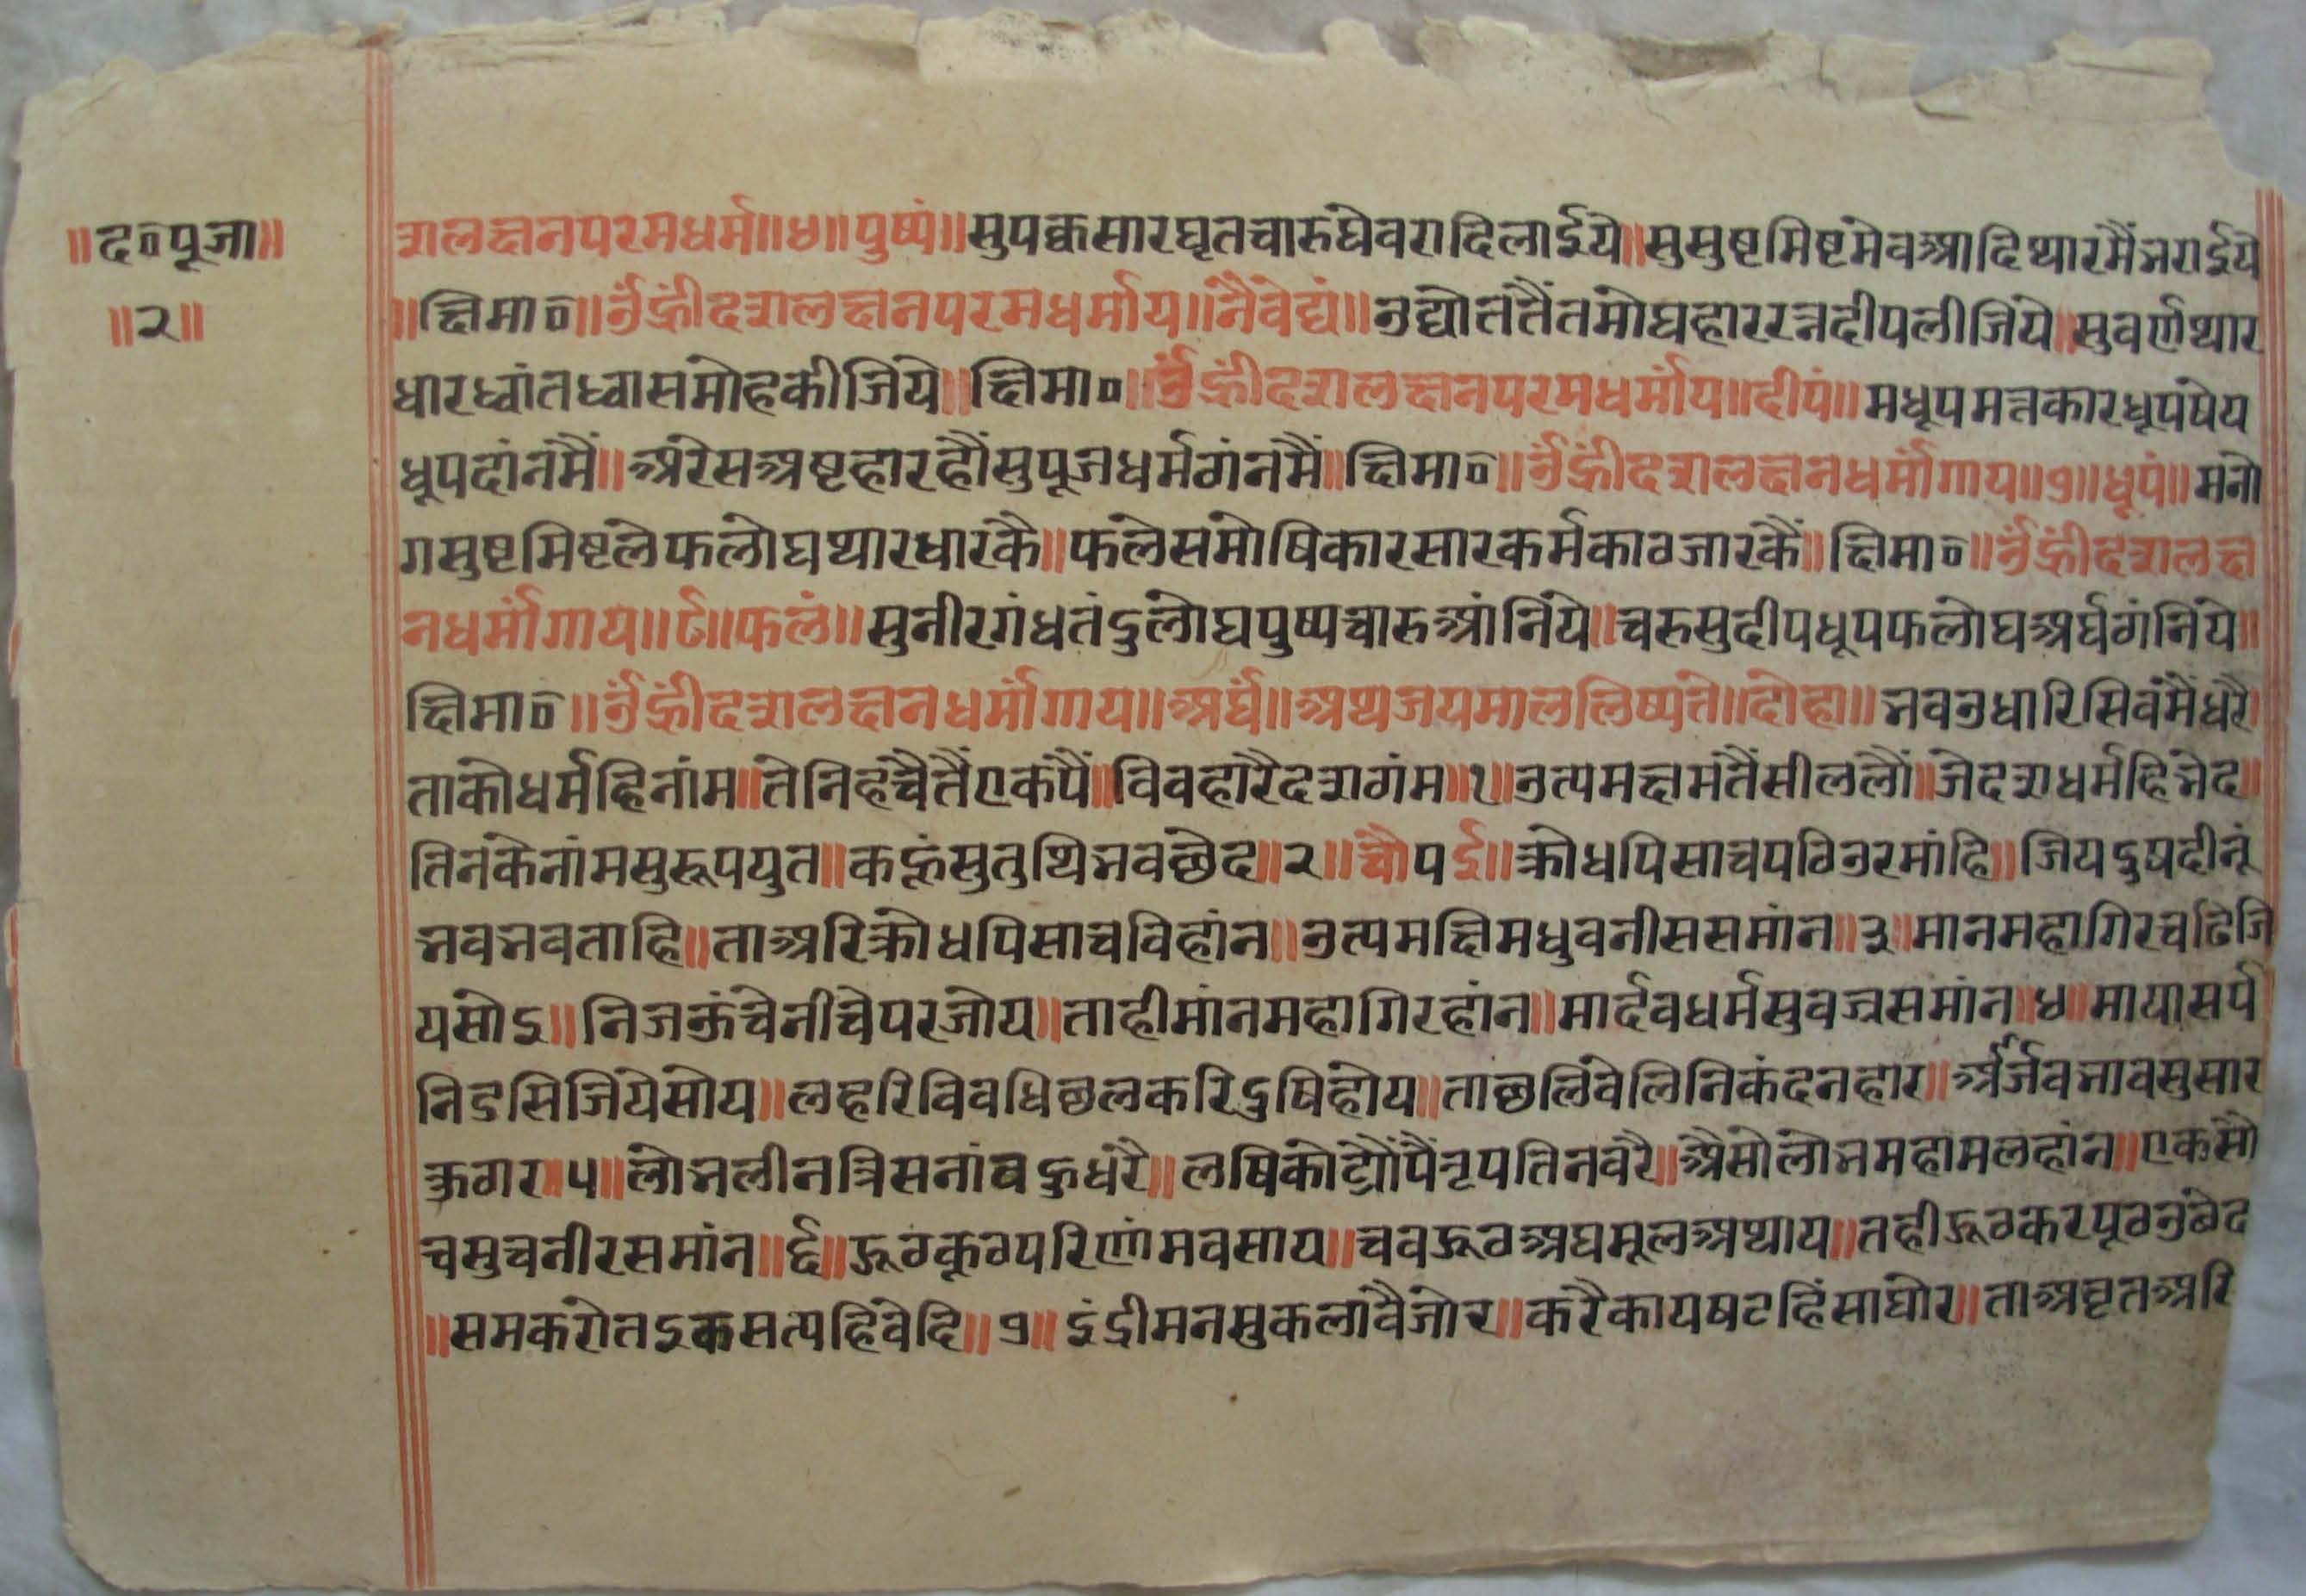 ॥द॰पूजा॥
॥२॥
शलक्षनपरमधर्म॥४॥पुष्पं॥सुपक्वसारघृतचारुघेवरादिलाईये॥सुसुष्टमिष्टमेवआदिथारमैंभराईये
॥क्षिमा॰॥ॐह्रींदशलक्षनपरमधर्माय॥नैवेद्यं॥उद्योततैंतमोघहाररत्नदीपलीजिये॥सुवर्णथार
धारध्वांतध्वासमोहकीजिये॥क्षिमा॰॥ॐह्रींदशलक्षनपरमधर्माय॥दीपं॥मधूपमत्तकारधूपंषेय
धूपदांनमैं॥अरेसअष्टहारहौंसुपूजधर्मगंनमैं॥क्षिमा॰॥ॐह्रींदशलक्षनधर्मांगाय॥७॥धूपं॥मनो
गसुष्टमिष्टलेफलोघथारधारकै॥फलेसमोषिकारसारकर्मकाठजारकैं॥क्षिमा॰॥ॐह्रींदशलक्ष
नधर्मांगाय॥८॥फलं॥सुनीरगंधतंदुलोघपुष्पचारुआंनिये॥चरुसुदीपधूपफलोघअर्घगंनिये॥
क्षिमा॰॥ॐह्रींदशलक्षनधर्मांगाय॥अर्घं॥अथजयमाललिष्यते॥दोहा॥भवउधारिसिवमैंधरै
ताकोधर्महिनांम॥तेनिहचैतैंएकपैं॥विवहारैदशगंम॥१॥उत्पमक्षमतैंसीललौं॥जेदशधर्महिभेद॥
तिनकेनांमसुरूपयुत॥कहूंसुतुथिभवछेद॥२॥चौपई॥क्रोधपिसाचपठिउरमांहि॥जियदुषदीनूं
भवभवताहि॥ताअरिक्रोधपिसाचविहांन॥उत्पमक्षिमधुवनीससमांन॥३॥मानमहागिरचढिजि
यसोइ॥निजऊंचेनीचेपरजोय॥ताहीमांनमहागिरहांन॥मार्दवधर्मसुवज्रसमांन॥४॥मायासर्प
निडसिजियेसोय॥लहरिविवधिछलकरिदुषिहोय॥ताछलिवेलिनिकंदनहार॥आर्जवभावसुसार
कुगर॥५॥लोभलीनत्रिसनांवकुधरै॥लषिकोट्यौंपैंनृपतिनवरै॥औसोलोभमहामलहांन॥एकसौ
चसुचनीरसमांन॥६॥झूठकूठपरिणांमवसाय॥चवझूठअघमूलअथाय॥तहीझूठकरपूठउंबेद
॥समकरोतइकसत्पहिवेदि॥७॥इंद्रीमनसुकलावैजोर॥करैकायषटहिंसाघोर॥ताअष्टतअरि